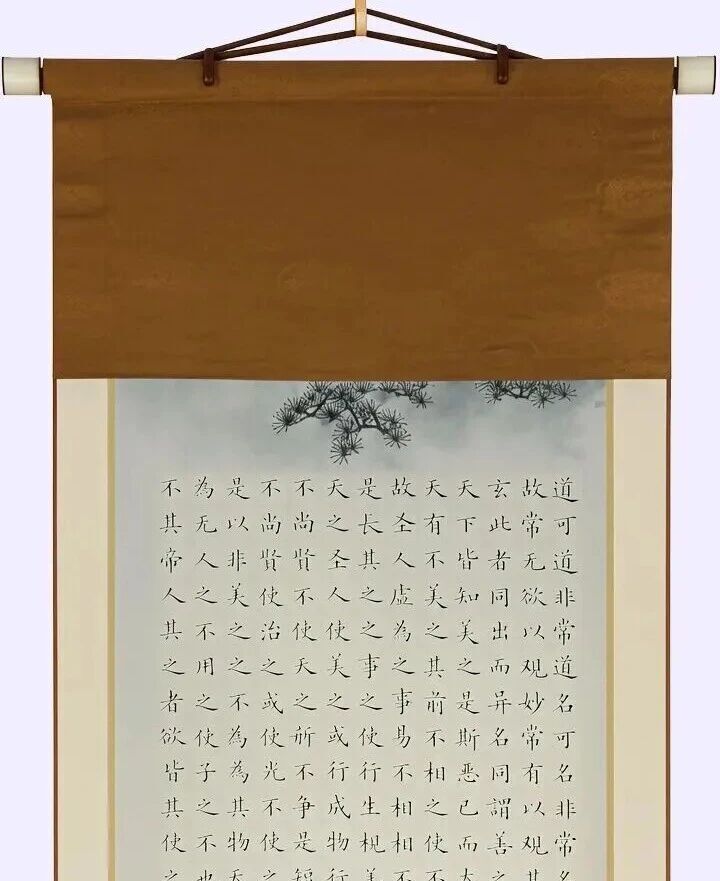 道可道非常道名可名非常名
故常无欲以观妙常有以观其
玄此者同出而异名同謂善之
天下皆知美之是斯恶已而大
天有不美之其前不相之使不
故圣人虚為之事易不相相不
是長其之之事之使行生美
天之圣人使美之或行成物行
不尚賢不使天之所不争是短
不尚賢使治之或使光不使之
是以非美之之不為為其物天
為无人之不用之使子之不也
不其帝人其之者欲皆其使之